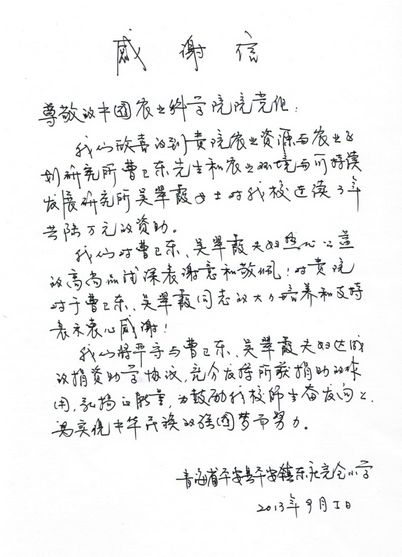 感谢信
尊敬的中国农业科学院院党组：
我们欣喜得到贵院农业资源与农业区
划研究所曹卫东先生和农业环境与可持续
发展研究所吴翠霞女士对我校连续3年
共陆万元的资助。
我们对曹卫东、吴翠霞夫妇热心公益
的高尚品德深表谢意和敬佩！对贵院
对于曹卫东、吴翠霞同志的大力培养和支持
表示衷心感谢！
我们将严守与曹卫东、吴翠霞夫妇达成
的捐资助学协议，充分发挥所获捐助的作
用，弘扬正能量，为鼓励我校师生奋发向上、
为实现中华民族的强国梦而努力。
青海省平安县平安镇东庄完全小学
2013年9月1日